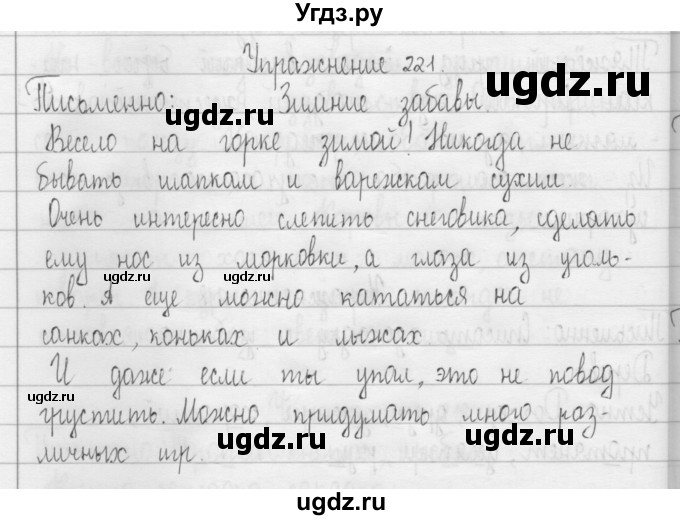 Угдз.ру
Упражнение 221
ugdz.ru
Письменно: Зимние забавы
ugdz.ru
Весело на горке зимой! Никогда не
бывать шапкам и варежкам сухим
Очень интересно слепить снеговика, сделать
ему нос из морковки, а глаза из уголь-
ugdz.ru ugdz.ru
ков. А еще можно кататься на
санках, коньках и лыжах
И даже если ты упал, это не повод
ugdz.ru
грустить. Можно придумать много раз-
ugdz.ru ugdz.ru
личных игр
ugdz.ru